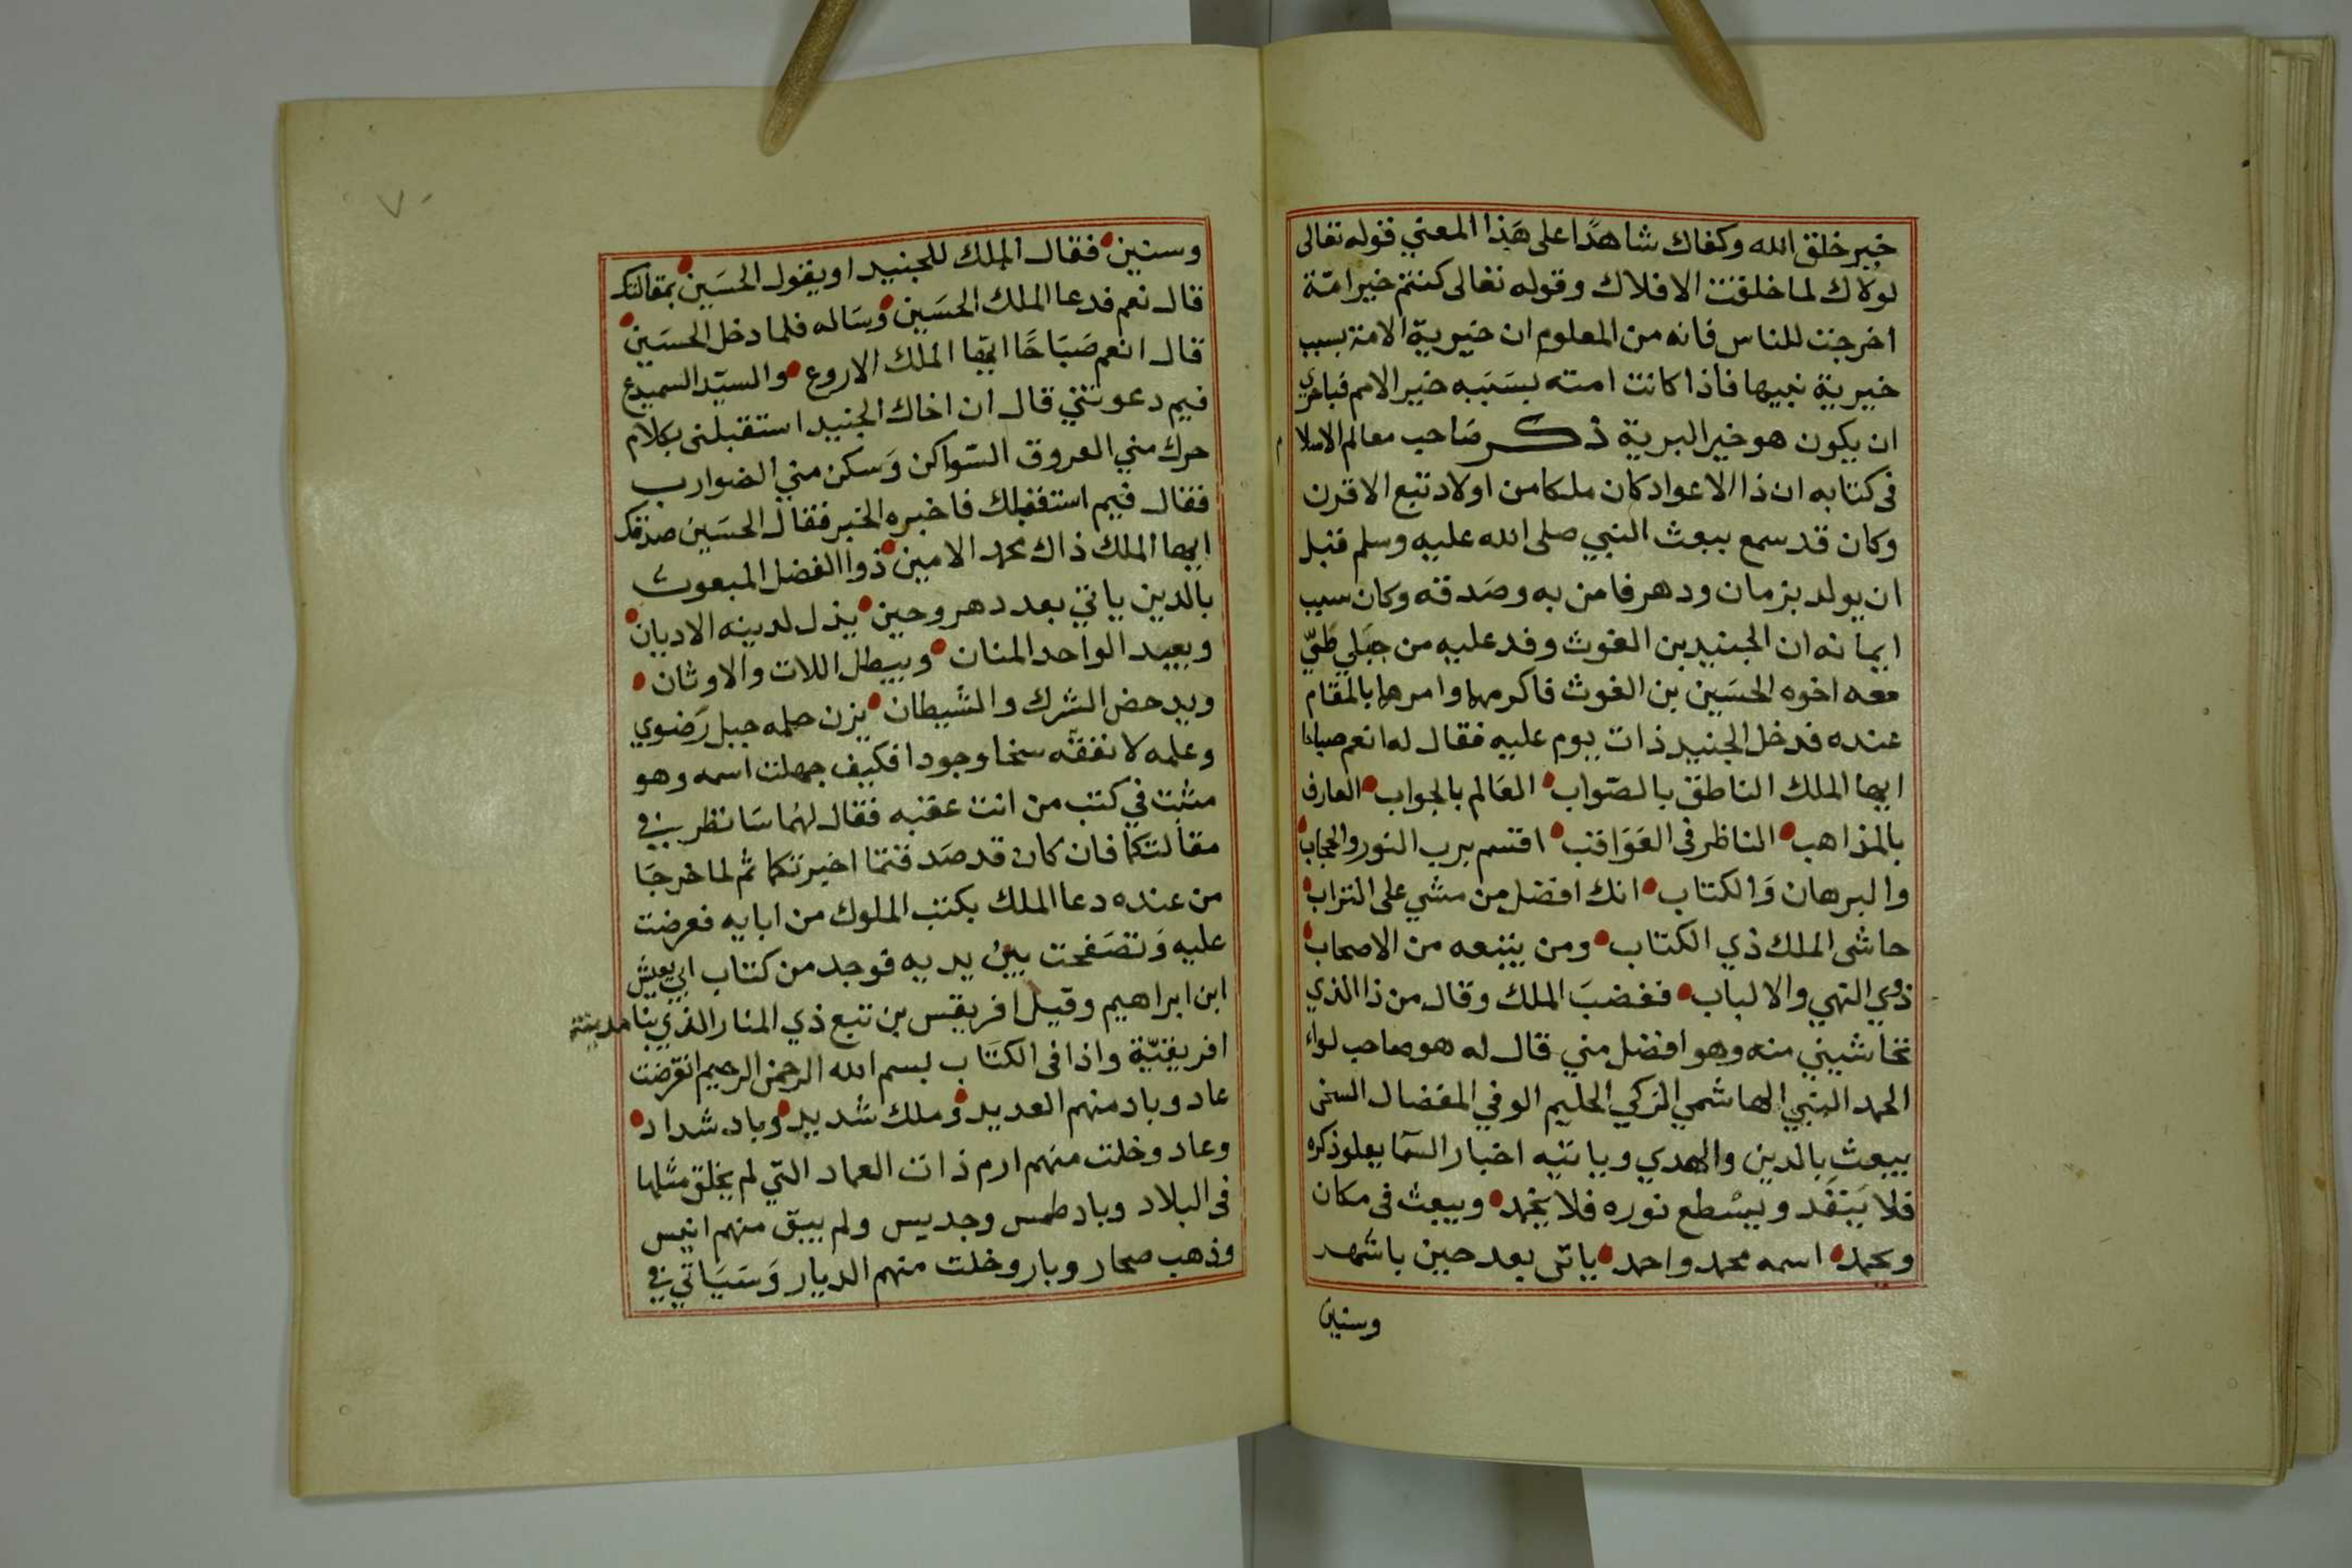 خير خلق الله وكفاك شاهدًا على هَذا المعني قوله تعالى
لولاك لما خلقت الافلاك وقوله تعالى كنتم خير امّة
اخرجت للناس فانه من المعلوم ان خيرية الامة بسبب
خيرية نبيها فاذا كانت امته بسَببه خير الامم فبالحري
ان يكون هو خير البرية ذكر صَاحب معالم الاسلام
فى كتابه ان ذا الاعواد كان ملكا من اولاد تبع الاقرن
وكان قد سمع ببعث النبي صلى الله عليه وسلم قبل
ان يولد بزمان ودهر فامن به وصَدقه وكان سبب
ايمانه ان الجنيد بن الغوث وفد عليه من جبَلي طَيّ
معه اخوه الحسَين بن الغوث فاكرمهما وامرهما بالمقام
عنده فدخل الجنيد ذات يوم عليه فقال له انعم صباحا
ايها الملك الناطق بالصّواب العَالم بالجواب العارف
بالمذاهب الناظر فى العَوَاقب اقسم برب النور والحجاب
والبرهان وَالكتاب انك افضل من مشي على التراب
حاشى الملك ذي الكتاب ومن يتبعه من الاصحاب
ذوي النهي والالباب فغضبَ الملك وقال من ذا الذي
تحاشيني منه وهو افضل مني قال له هو صاحب لواء
الحمد النبي الهاشمي الزكي الحليم الوفي المفضال السخى
يبعث بالدين والهدي وياتيه اخبار السّما يعلو ذكره
فلا يَنفَد ويسْطع نوره فلا يخمد ويبعث فى مكان
ويحمد اسمه محمد واحمد ياتى بعد حين باشهد
وسنين
وسنين فقال الملك للجنيد او يقول الحسَين بمقالتك
قال نعم فدعا الملك الحسَين وسَاله فلما دخل الحسَين
قال انعم صَبَاحًا ايّها الملك الاروع والسيّد السميدع
فيم دعوتني قال ان اخاك الجنيد استقبلنى بكلام
حرك مني العروق السّواكن وَسكن مني الضوارب
فقال فيم استقبلك فاخبره الخبر فقال الحسَين صدقك
ايها الملك ذاك محمد الامين ذوا الفضل المبعوث
بالدين ياتي بعد دهر وحين يذل لدينه الاديان
ويعبد الواحد المنان ويبطل اللات والاوثان
ويدحض الشرك والشيطان يزن حلمه جبل رَضوي
وعلمه لا نفقه سخا وجودا فكيف جهلت اسمه وهو
مثبت في كتب من انت عقبه فقال لهُما سَانظر في
مقالتكما فان كان قد صَدقتما اخبرتكما ثم لما خرجَا
من عنده دعا الملك بكتب الملوك من ابايه فعرضت
عليه وَتصَفحت بين يديه فوجد من كتاب ابي يعيش
ابن ابراهيم وقيل افريقس بن تبع ذي المنار الذي بنا مدينة
افريقيّة واذا فى الكتَاب بسم الله الرحمن الرحيم انقرضت
عاد وباد منهم العديد وملك شديد وباد شداد
وعاد وخلت منهم ارم ذات العماد التي لم يخلق مثلها
فى البلاد وباد طمس وجديس ولم يبق منهم انيس
وذهب صحار وبار وخلت منهم الديار وَسَيَاتي في